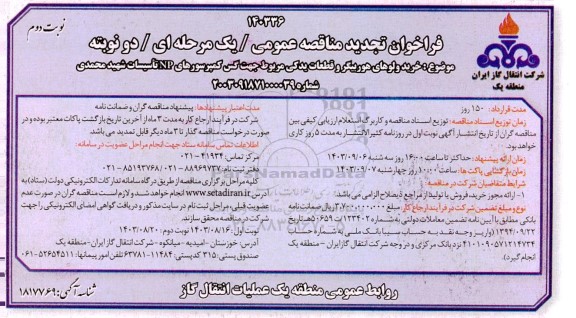 ۱۴۰۳۳۶
نوبت دوم
فراخوان تجدید مناقصه عمومی / یک مرحله ای / دو نوبته
موضوع : خرید ولوهای هوربیگر و قطعات یدکی مربوطه جهت کمپرسورهای تأسیسات شهید محمدی
شماره ۲۰۰۳۰۹۱۸۷۱۰۰۰۰۳۹
شرکت انتقال گاز ایران
منطقه یک
مدت قرارداد: ۱۵۰ روز
زمان توزیع اسناد مناقصه: توزیع اسناد مناقصه و کاربرگ استعلام ارزیابی کیفی بین
مناقصه گران از تاریخ انتشار آگهی نوبت اول در روزنامه کثیرالانتشار به مدت ۵ روز کاری
خواهد بود.
زمان ارائه پیشنهاد: حداکثر تا ساعت ۱۶:۰۰ روز سه شنبه ۱۴۰۳/۰۹/۰۶
زمان بازگشایی پاکت ها: ساعت ۱۰:۰۰ روز چهارشنبه ۱۴۰۳/۰۹/۰۷
شرایط متقاضیان شرکت در مناقصه:
۱- ارائه مجوز خرید، فروش یا تولید از مراجع ذیصلاح الزامی می باشد.
نوع و مبلغ تضمین شرکت در فرآیند ارجاع کار: مبلغ ریال ضمانت نامه
بانکی مطابق با آیین نامه تضمین معاملات دولتی به شماره ۱۲۳۴۰۲/ت۵۰۶۵۹ه تاریخ
۱۳۹۴/۰۹/۲۲ (واریز وجه نقد به حساب سیبا بانک ملی به شماره حساب
نزد بانک مرکزی و در وجه شرکت انتقال گاز ایران - منطقه یک
انجام گیرد).
مدت اعتبار پیشنهادها: پیشنهاد مناقصه گران و ضمانت نامه
شرکت در فرآیند ارجاع کار به مدت ۳ ماه از آخرین تاریخ بازگشت پاکات معتبر بوده و در
صورت درخواست مناقصه گذار تا ۳ ماه دیگر قابل تمدید می باشد.
اطلاعات تماس سامانه ستاد جهت انجام مراحل عضویت در سامانه:
مرکز تماس: ۴۱۹۳۴-۰۲۱
دفتر ثبت نام: ۸۸۹۶۹۷۳۷-۰۲۱ / ۸۵۱۹۳۷۶۸-۰۲۱
کلیه مراحل برگزاری مناقصه از طریق درگاه سامانه تدارکات الکترونیکی دولت (ستاد) به
آدرس www.setadiran.ir انجام خواهد شد و لازم است مناقصه گران در صورت عدم
عضویت قبلی، مراحل ثبت نام در سایت مذکور و دریافت گواهی امضای الکترونیکی را جهت
شرکت در مناقصه محقق سازند.
نوبت اول: ۱۴۰۳/۰۸/۱۶ نوبت دوم: ۱۴۰۳/۰۸/۲۰
آدرس: خوزستان - امیدیه - میانکوه - شرکت انتقال گاز ایران - منطقه یک
صندوق پستی: ۳۱۵ کدپستی: ۱۱۴۸۴-۶۳۷۸۱ تلفن امور پیمانها: ۵۲۶۵۴۵۱۱-۰۶۱
روابط عمومی منطقه یک عملیات انتقال گاز
شناسه آگهی: ۱۸۱۷۷۶۹